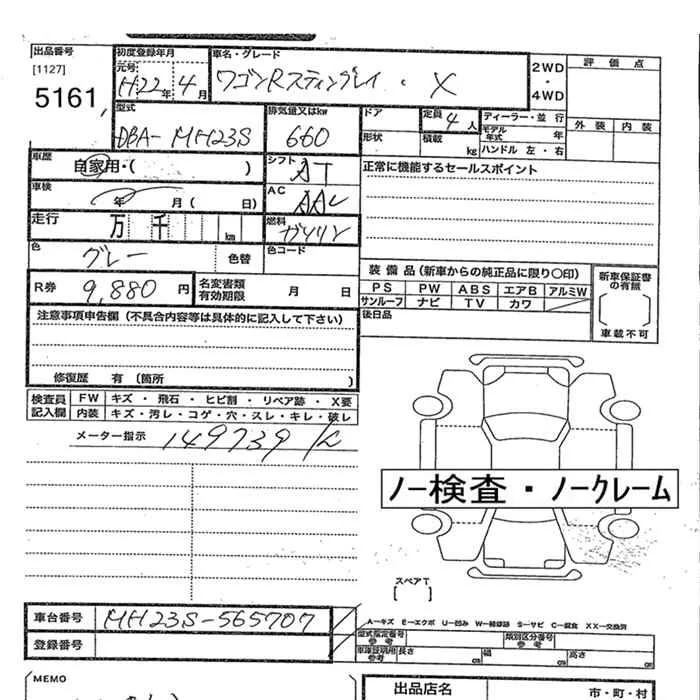 出品番号
[1127]
5161
初度登録年月
元号
H22年4月
車名・グレード
ワゴンRスティングレイ・X
2WD
・
4WD
評価点
外装 内装
型式
DBA-MH23S
排気量又はkw
660
ドア
形状
定員 4人
積載 kg
ディーラー・並行
モデル年式 年
ハンドル 左・右
車歴
自家用・( )
シフト
AT
正常に機能するセールスポイント
車検
年 月( 日)
AC
AAC
走行
万 千 km
燃料
ガソリン
色
グレー
色替
色コード
R券 9,880 円
名変書類有効期限 月 日
装備品(新車からの純正品に限り○印)
PS PW ABS エアB アルミW
サンルーフ ナビ TV カワ
新車保証書の有無
[ ]
車載不可
後日品
注意事項申告欄(不具合内容等は具体的に記入して下さい)
修復歴 有(箇所 )
検査員記入欄
FW キズ・飛石・ヒビ割・リペア跡・X要
内装 キズ・汚レ・コゲ・穴・スレ・キレ・破レ
メーター指示 149739 K
ノー検査・ノークレーム
スペアT
[ ]
車台番号 MH23S-565707
登録番号
A-キズ E-エクボ U-凹み W-補修跡 S-サビ C-腐食 XX-交換済
型式指定番号参考
類別区分番号参考
車庫証明用参考 長さ cm 幅 cm 高さ cm
(MEMO
出品店名
市・町・村